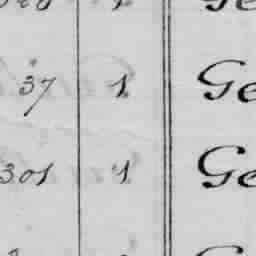 37 1 Ge
301 1 Ge